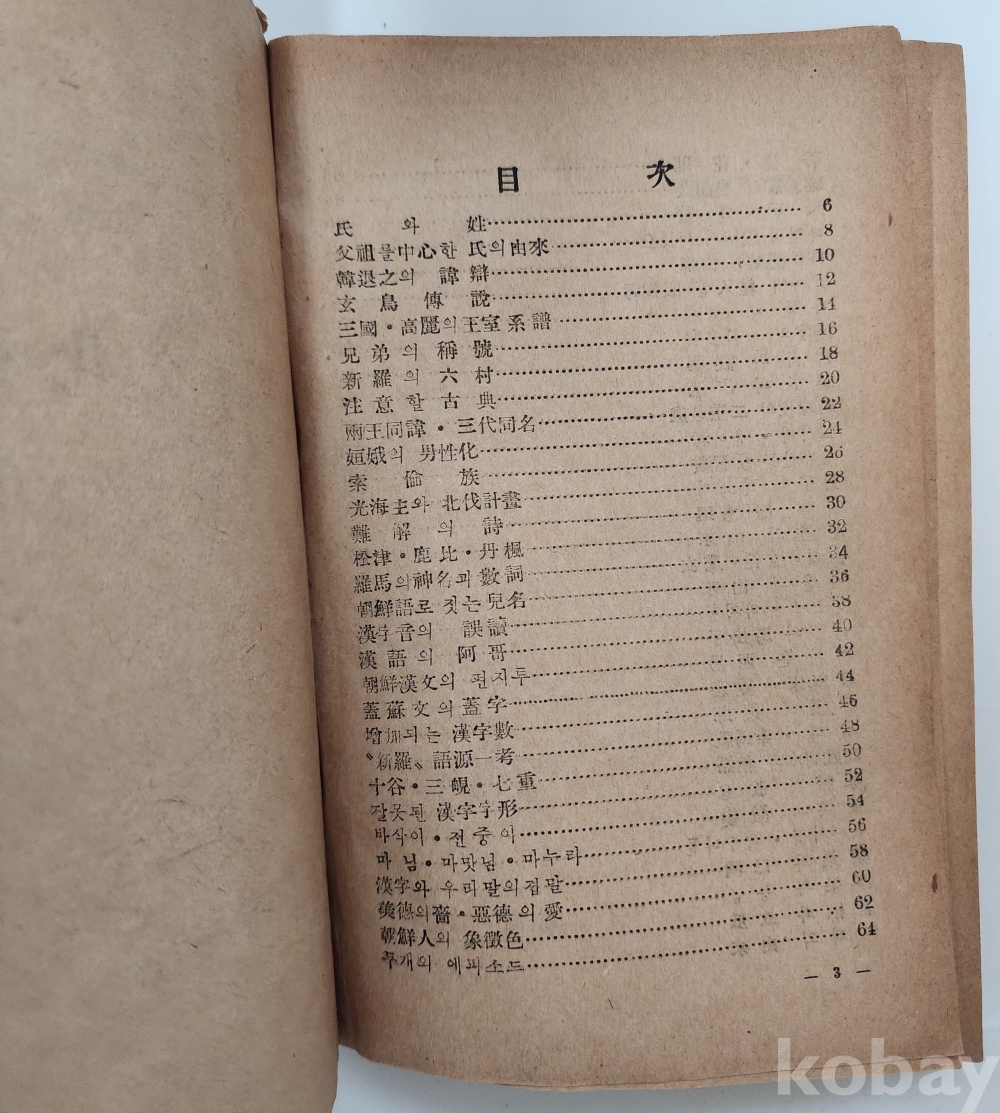 目 次
氏 와 姓……………………6
父祖를中心한 氏의由來……………………8
韓退之의 諱辯……………………10
玄鳥傳說……………………12
三國・高麗의王室系譜……………………14
兄弟의稱號……………………16
新羅의六村……………………18
注意할古典……………………20
兩王同諱・三代同名……………………22
姮娥의 男性化……………………24
索倫族……………………26
光海主와 北伐計畫……………………28
難解의詩……………………30
松津・鹿比・丹楓……………………32
羅馬의神名과數詞……………………34
朝鮮語로 짓는兒名……………………36
漢字音의 誤讀……………………38
漢語의 阿哥……………………40
朝鮮漢文의 편지투……………………42
蓋蘇文의蓋字……………………44
增加되는 漢字數……………………46
〝新羅〟語源一考……………………48
十谷・三峴・七重……………………50
잘못된 漢字字形……………………52
바삭이・전중이……………………54
마님・마맛님・마누라……………………56
漢字와 우리말의겹말……………………58
美德의嗇・惡德의愛……………………60
朝鮮人의 象徵色……………………62
두개의 에피소드……………………64
— 3 —
kobay